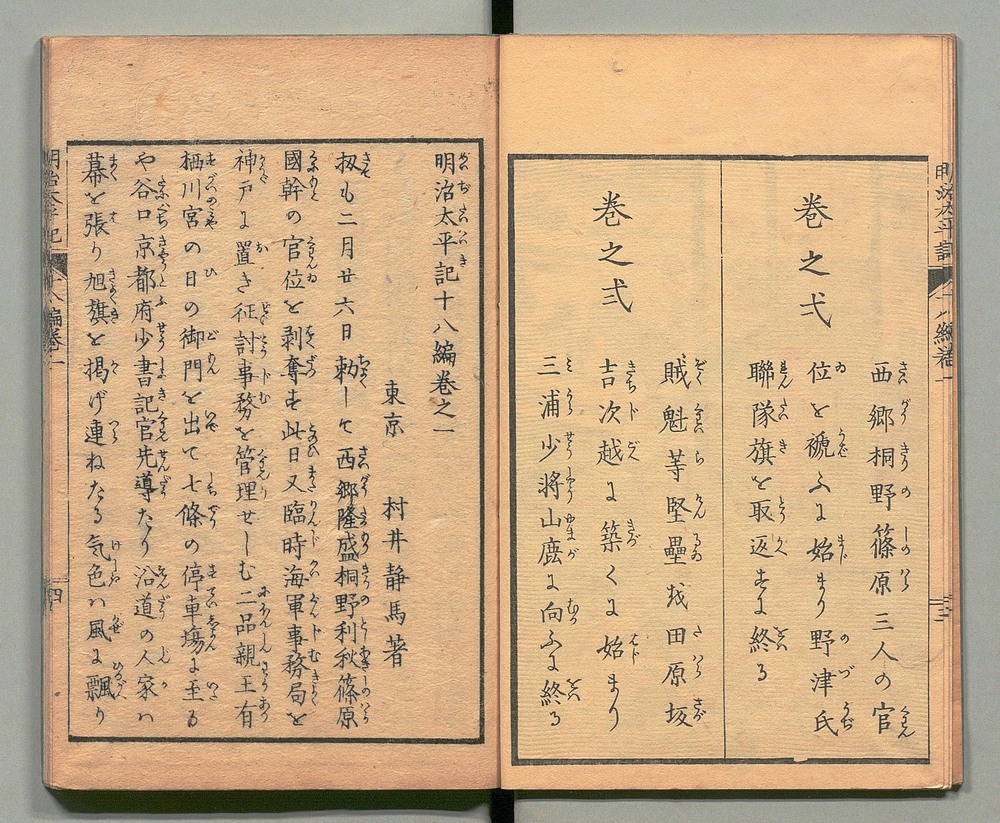 明治太平記十八編巻一
巻之弌
西郷桐野篠原三人の官
位を褫ふに始まり野津氏
聯隊旗を取返すに終る
巻之弍
賊魁等堅塁を田原坂
吉次越に築くに始まり
三浦少将山鹿に向ふに終る
三
明治太平記十八編巻之一
東京　村井静馬著
扨も二月廿六日勅して西郷隆盛桐野利秋篠原
國幹の官位を剥奪す此日又臨時海軍事務局を
神戸に置き征討事務を管理せしむ二品親王有
栖川宮の日の御門を出て七條の停車塲に至る
や谷口京都府少書記官先導たり沿道の人家ハ
幕を張り旭旗を掲げ連ねたる気色ハ風に飄り
明治太平記
十八編巻一
四